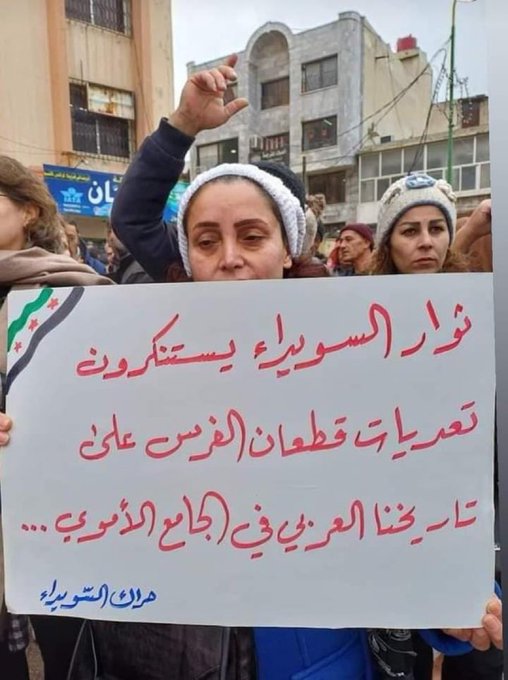 نوار السويداء يستنكرون
تعديات قطعان الفرس على
تاريخنا العربي في الجامع الأموي ...
حراك السّويداء
IATA